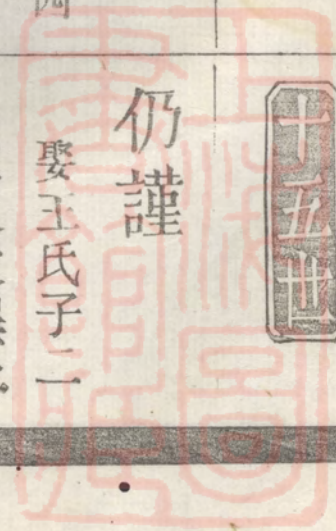 十五世
仍謹
娶王氏子二